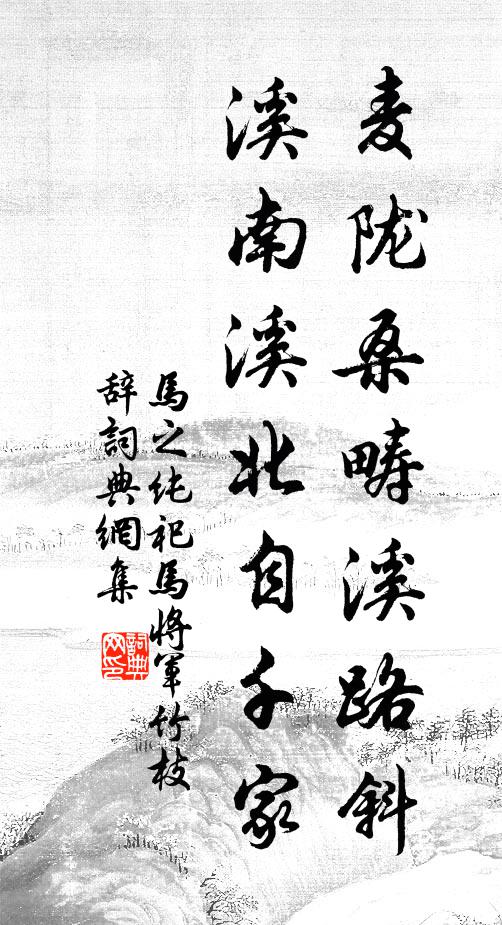 麦陇桑畴溪路斜
溪南溪北自千家
馬之纯祀馬将軍竹枝
辞詞典網集
詞典网印